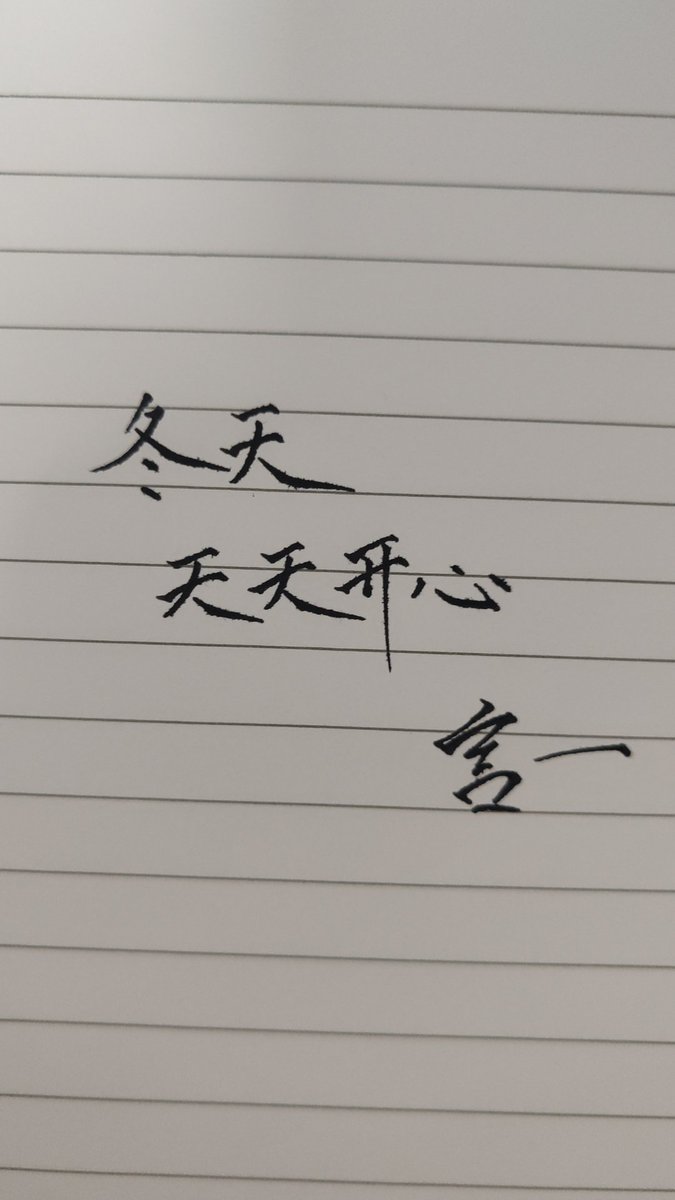 冬天
天天开心
宫一